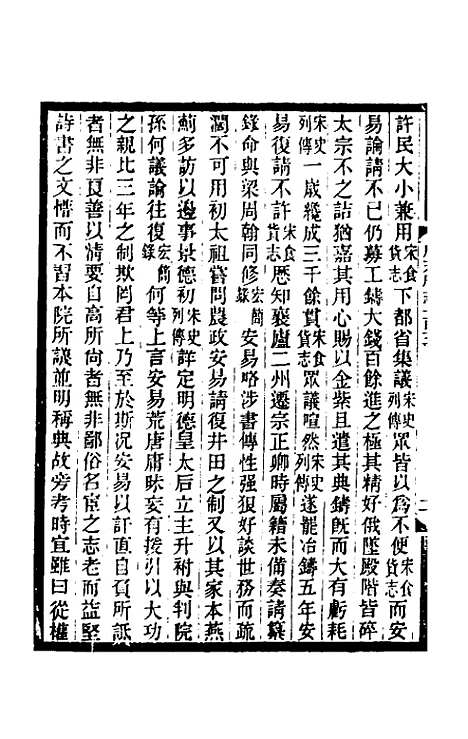 許民大小兼用宋食貨志下都省集議宋史列傳眾皆以爲不便宋食貨志而安
易論請不已仍募工鑄大錢百餘進之極其精好俄墜殿階皆碎
太宗不之詰猶嘉其用心賜以金紫且遣其典鑄旣而大有虧耗
宋史列傳一歲纔成三千餘貫宋食貨志眾議喧然宋史列傳遂罷冶鑄五年安
易復請不許宋食貨志歷知襄廬二州遷宗正卿時屬籍未備奏請纂
錄命與梁周翰同修宏簡錄安易略涉書傳性强狠好談世務而疏
濶不可用初太祖嘗問農政安易請復井田之制又以其家本燕
薊多訪以邊事景德初宋史列傳詳定明德皇太后立主升祔與判院
孫何議論往復宏簡錄何等上言安易荒唐庸昧妄有援引以大功
之親比三年之制欺罔君上乃至於斯况安易以訐直自負所詆
者無非良善以淸要自高所尙者無非鄙俗名宦之志老而益堅
詩書之文懵而不習本院所議並明稱典故旁考時宜雖曰從權